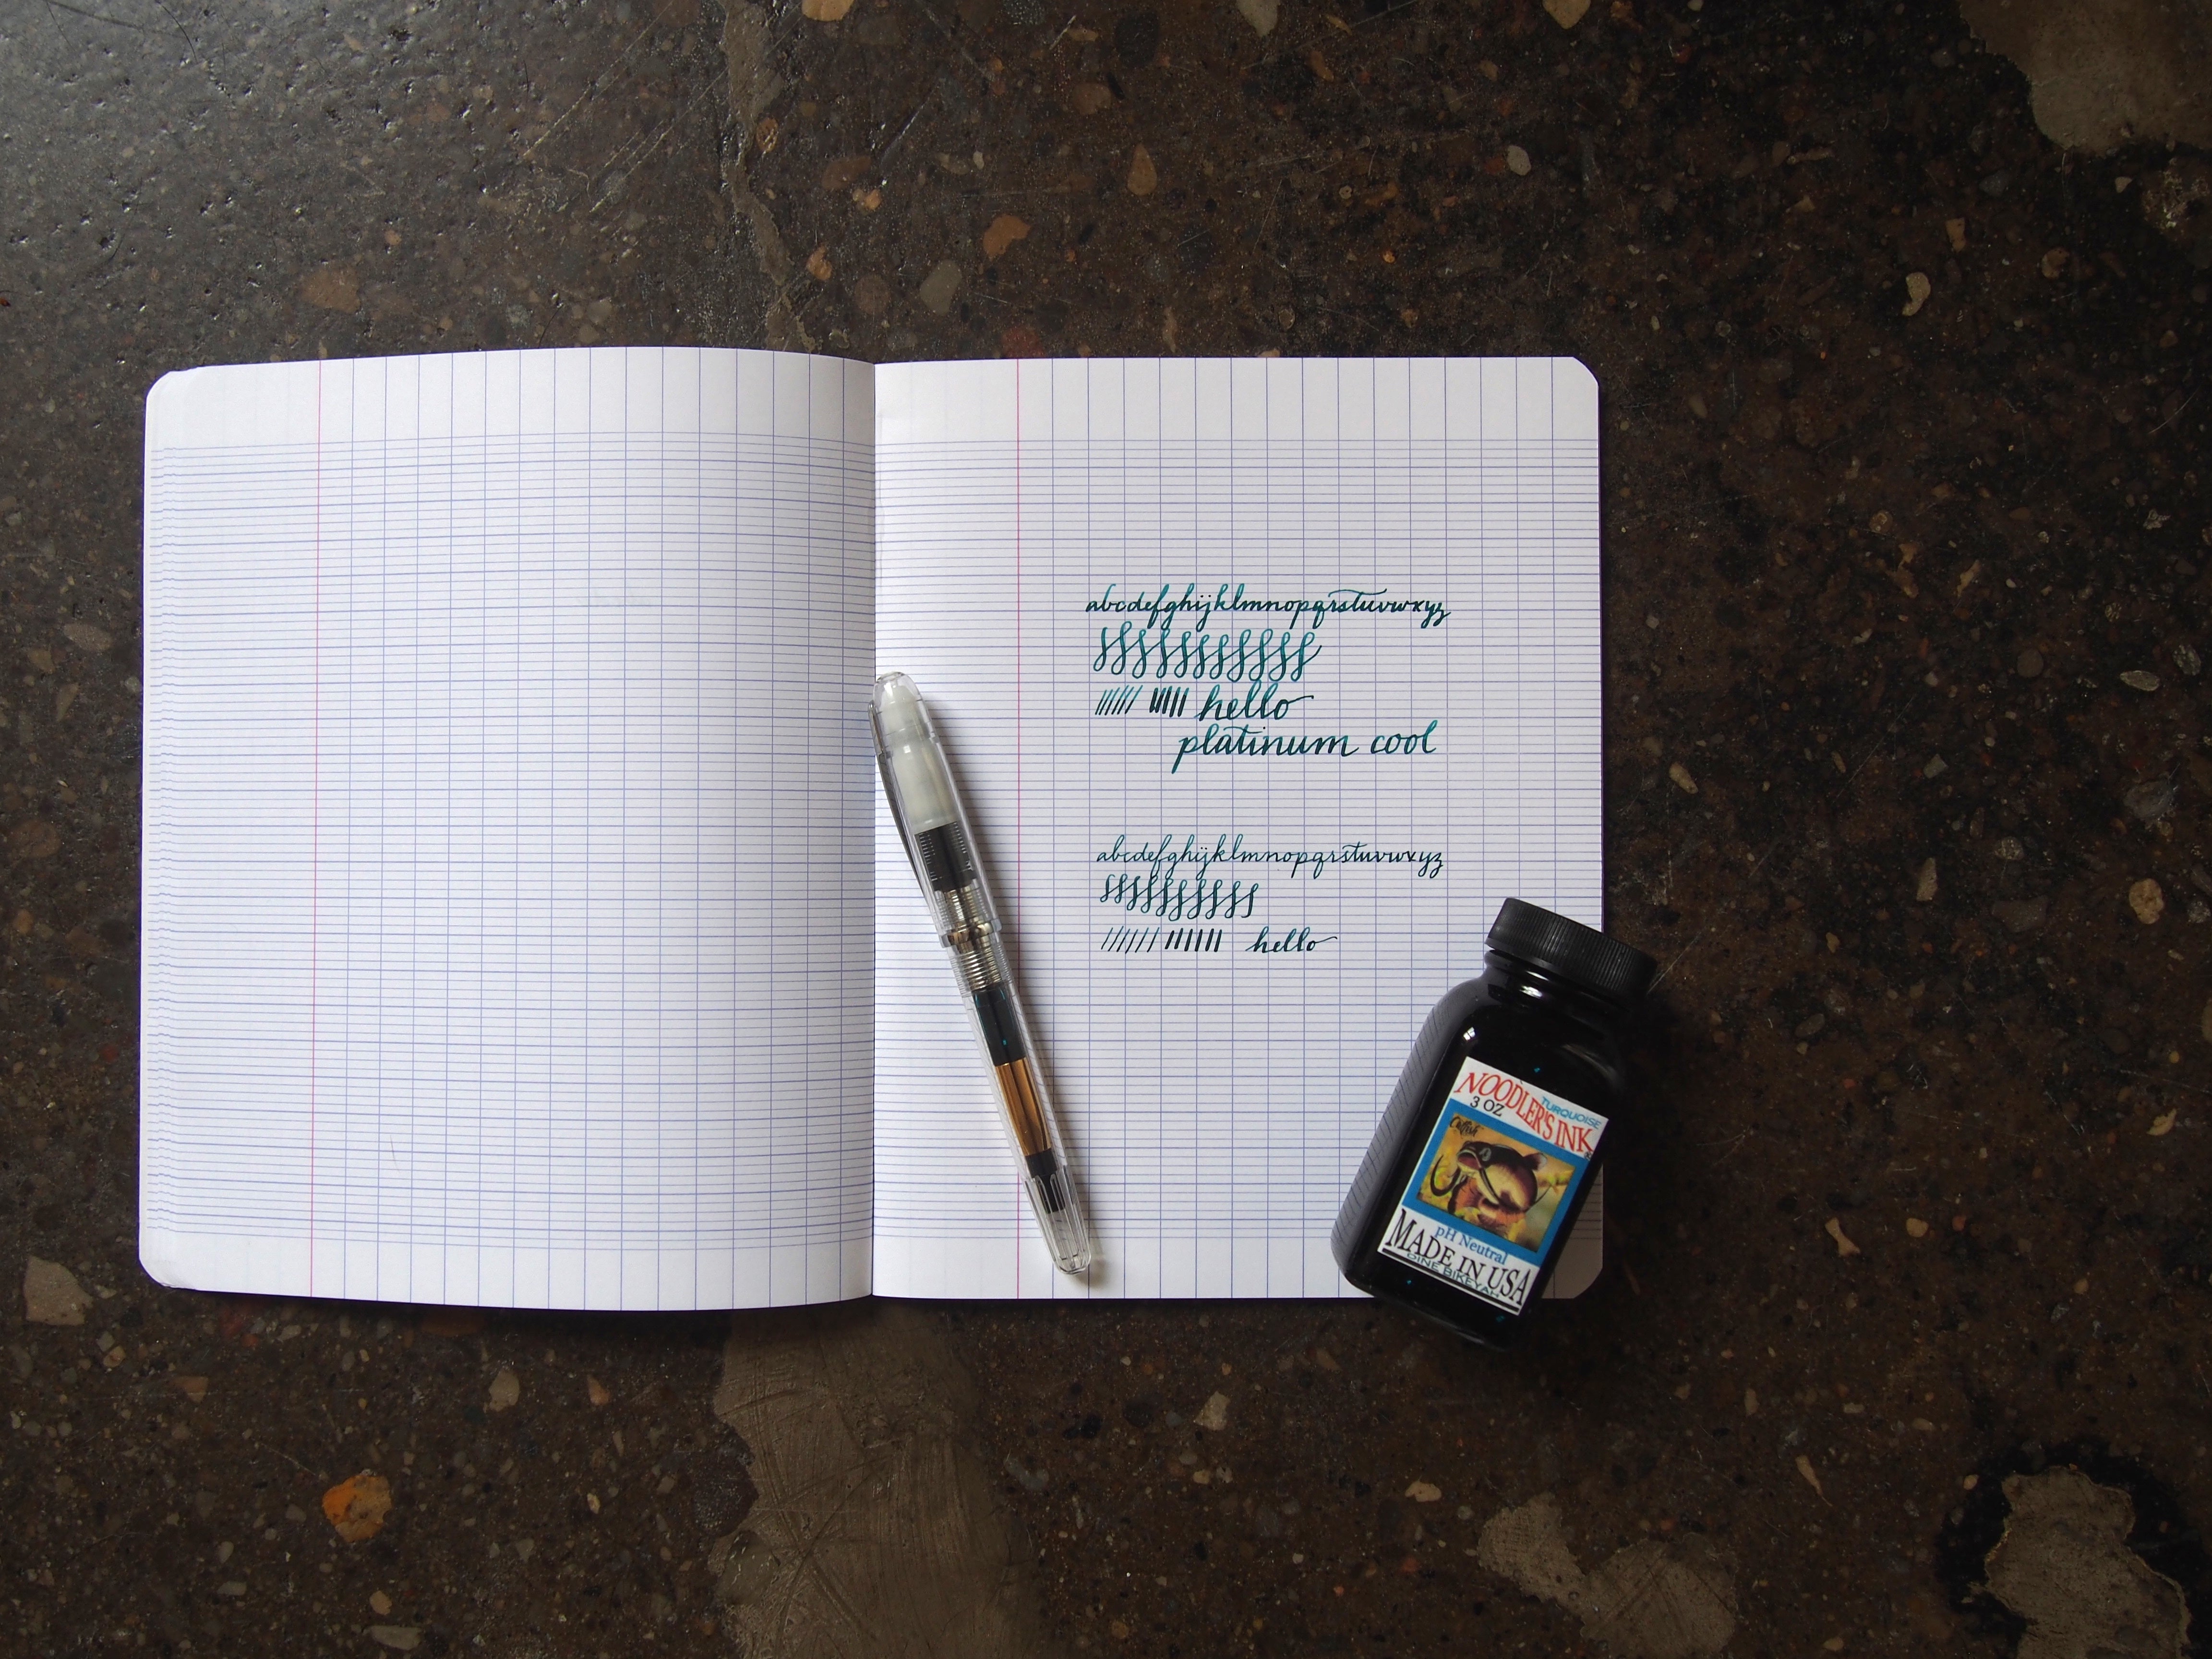 abcdefghijklmnopqrstuvwxyz
hello
platinum cool
abcdefghijklmnopqrstuvwxyz
hello
NOODLER'S INK
TURQUOISE
3 OZ
Catfish
pH Neutral
MADE IN USA
DINE BIKEYAH